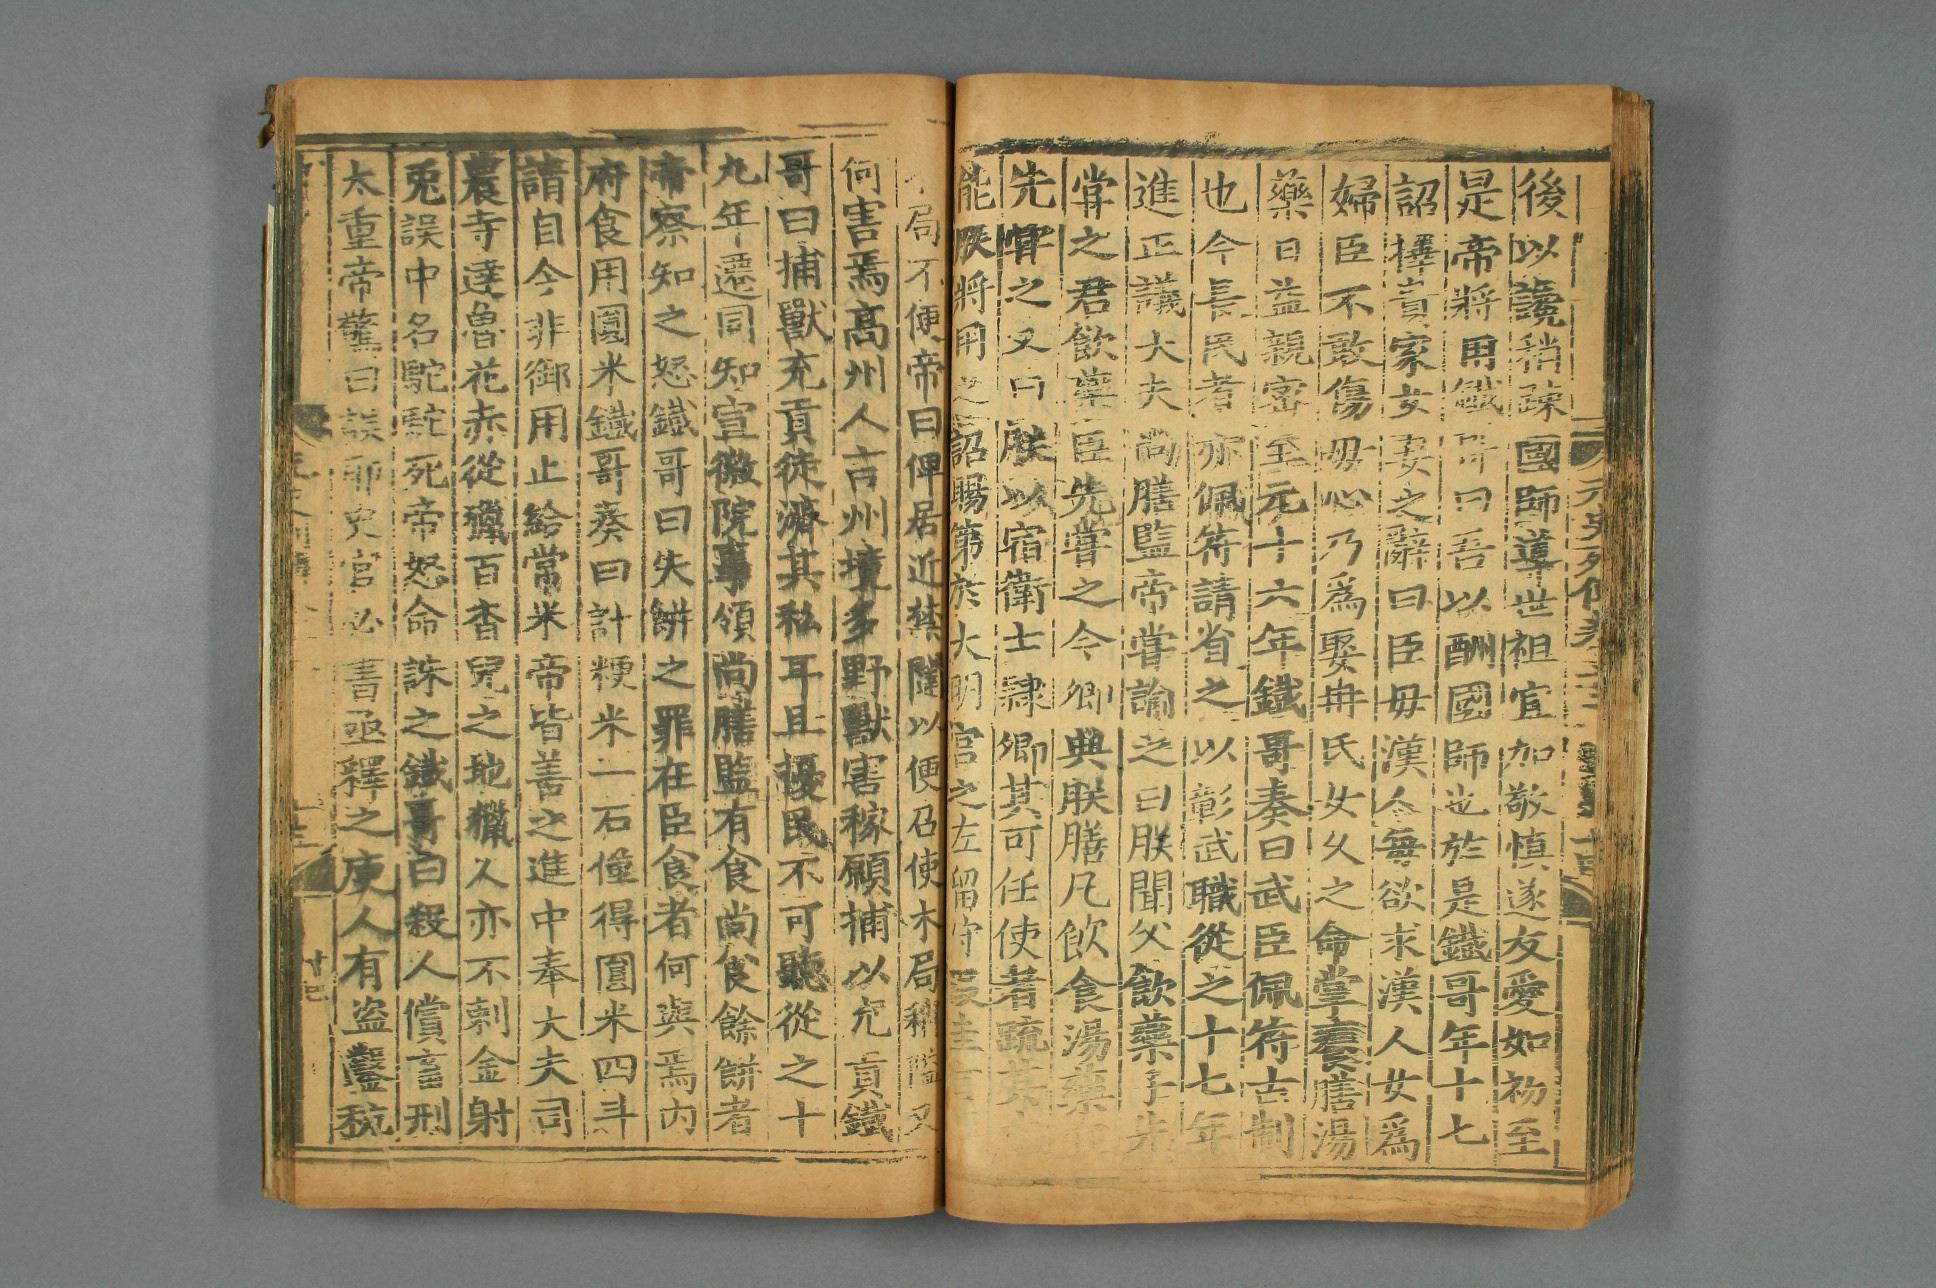 後以讒稍疎國師導世祖宜加敬慎遂友愛如初至
是帝將用鐵哥曰吾以酬國師也於是鐵哥年十七
詔擇貴家女妻之辭曰臣母漢人每欲求漢人女爲
婦臣不敢傷母心乃爲娶冉氏女久之命掌饔膳湯
藥日益親密至元十六年鐵哥奏曰武臣佩符古制
也今長民者亦佩符請省之以彰武職從之十七年
進正議大夫尚膳監帝嘗諭之曰朕聞父飲藥子先
嘗之君飲藥臣先嘗之今卿典朕膳凡飲食湯藥
先嘗之又曰朕以宿衛士隸卿其可任使者疏其
能朕將用之詔賜第於大明宮之左留守段圭言
局不便帝曰俾居近禁闥以便召使木局稍隘又
何害焉高州人言州境多野獸害稼願捕以充貢鐵
哥曰捕獸充貢徒濟其私耳且擾民不可聽從之十
九年遷同知宣徽院事領尚膳監有食尚食餘餅者
帝察知之怒鐵哥曰失餅之罪在臣食者何與焉内
府食用圓米鐵哥奏曰計粳米一石僅得圓米四斗
請自今非御用止給常米帝皆善之進中奉大夫司
農寺達魯花赤從獵百杳兒之地獵人亦不剌金射
兎誤中名駝駝死帝怒命誅之鐵哥曰殺人償畜刑
太重帝驚曰誤耶史官必書亟釋之庾人有盜鑿秔
元史列傳卷十二
十四